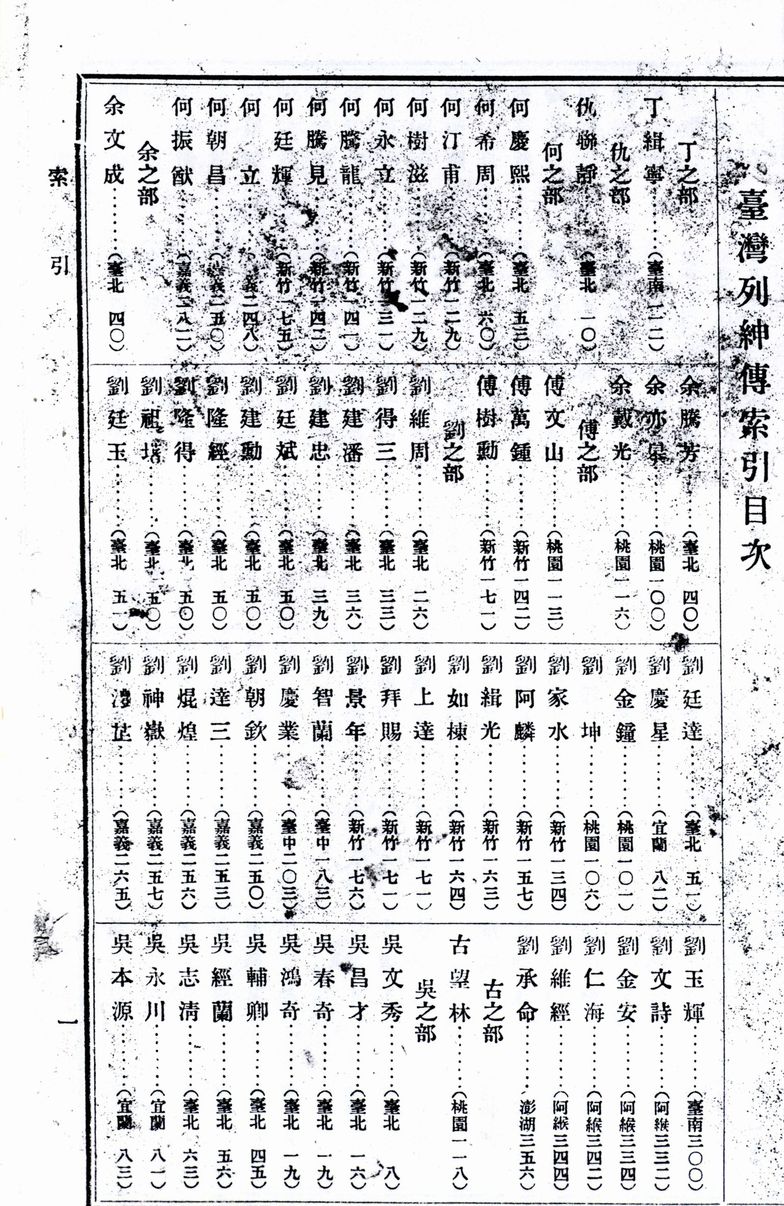 臺灣列紳傳索引目次
丁之部
丁緝寧………(臺南 二一二)
仇之部
仇聯靜………(臺北 一〇)
何之部
何慶熙………(臺北 五三)
何希周………(臺北 六〇)
何汀甫………(新竹一二九)
何樹滋………(新竹一二九)
何永立………(新竹一三一)
何騰龍………(新竹一四一)
何騰見………(新竹一四二)
何廷輝………(新竹一七五)
何立………義二四八)
何朝昌………義二五〇)
何振猷………(嘉義二八二)
余之部
余文成………(臺北 四〇)
余騰芳………(臺北 四〇)
余亦皋………(桃園一〇〇)
余戴光………(桃園一一六)
傅之部
傅文山………(桃園一一三)
傅萬鍾………(新竹一四二)
傅樹勳………(新竹一七一)
劉之部
劉維周………(臺北 二六)
劉得三………(臺北 三三)
劉建潘………(臺北 三六)
劉建忠………(臺北 三九)
劉廷斌………(臺北 五〇)
劉建勳………(臺北 五〇)
劉隆經………(臺北 五〇)
劉隆得………(臺北 五〇)
劉祖………(臺北 五〇)
劉廷玉………(臺北 五一)
劉廷達………(臺北 五一)
劉慶星………(宜蘭 八二)
劉金鐘………(桃園一〇一)
劉坤………(桃園一〇六)
劉家水………(新竹一三四)
劉阿麟………(新竹一五七)
劉緝光………(新竹一六三)
劉如棟………(新竹一六四)
劉上達………(新竹一七一)
劉拜賜………(新竹一七一)
劉景年………(新竹一七六)
劉智蘭………(臺中一八三)
劉慶業………(臺中二〇三)
劉朝欽………(嘉義二五〇)
劉達三………(嘉義二五三)
劉焜煌………(嘉義二五六)
劉神嶽………(嘉義二五七)
劉芷………(嘉義二六五)
劉玉輝………(臺南三〇〇)
劉文詩………(阿緱三三二)
劉金安………(阿緱三三四)
劉仁海………(阿緱三四二)
劉維經………(阿緱三四四)
劉承命………澎湖三五六)
古之部
古望林………(桃園一一八)
吳之部
吳文秀………(臺北 八)
吳昌才………(臺北 一六)
吳春奇………(臺北 一九)
吳鴻奇………(臺北 一九)
吳輔卿………(臺北 四五)
吳經蘭………(臺北 五六)
吳志淸………(臺北 六三)
吳永川………(宜蘭 八一)
吳本源………(宜蘭 八三)
索引
一